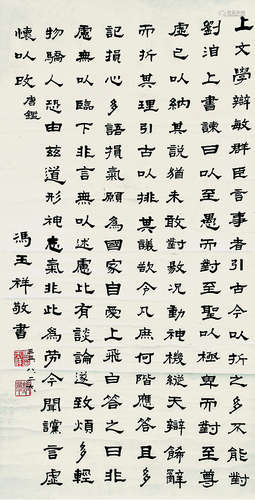 上文學辯敏群臣言事者引古今以折之多不能對
劉洎上書諫曰以至愚而對至聖以極卑而對至尊
虛己以納其說猶未敢對敭況動神機縱天辯餙辭
而折其理引古以排其議欲令凡庶何階應答且多
記損心多語損氣願為國家自愛上飛白答之曰非
慮無以臨下非言無以述慮比有談論遂致煩多輕
物驕人恐由茲道形神志氣非此為勞今聞讜言虛
懷以改 唐鑑
馮玉祥敬書